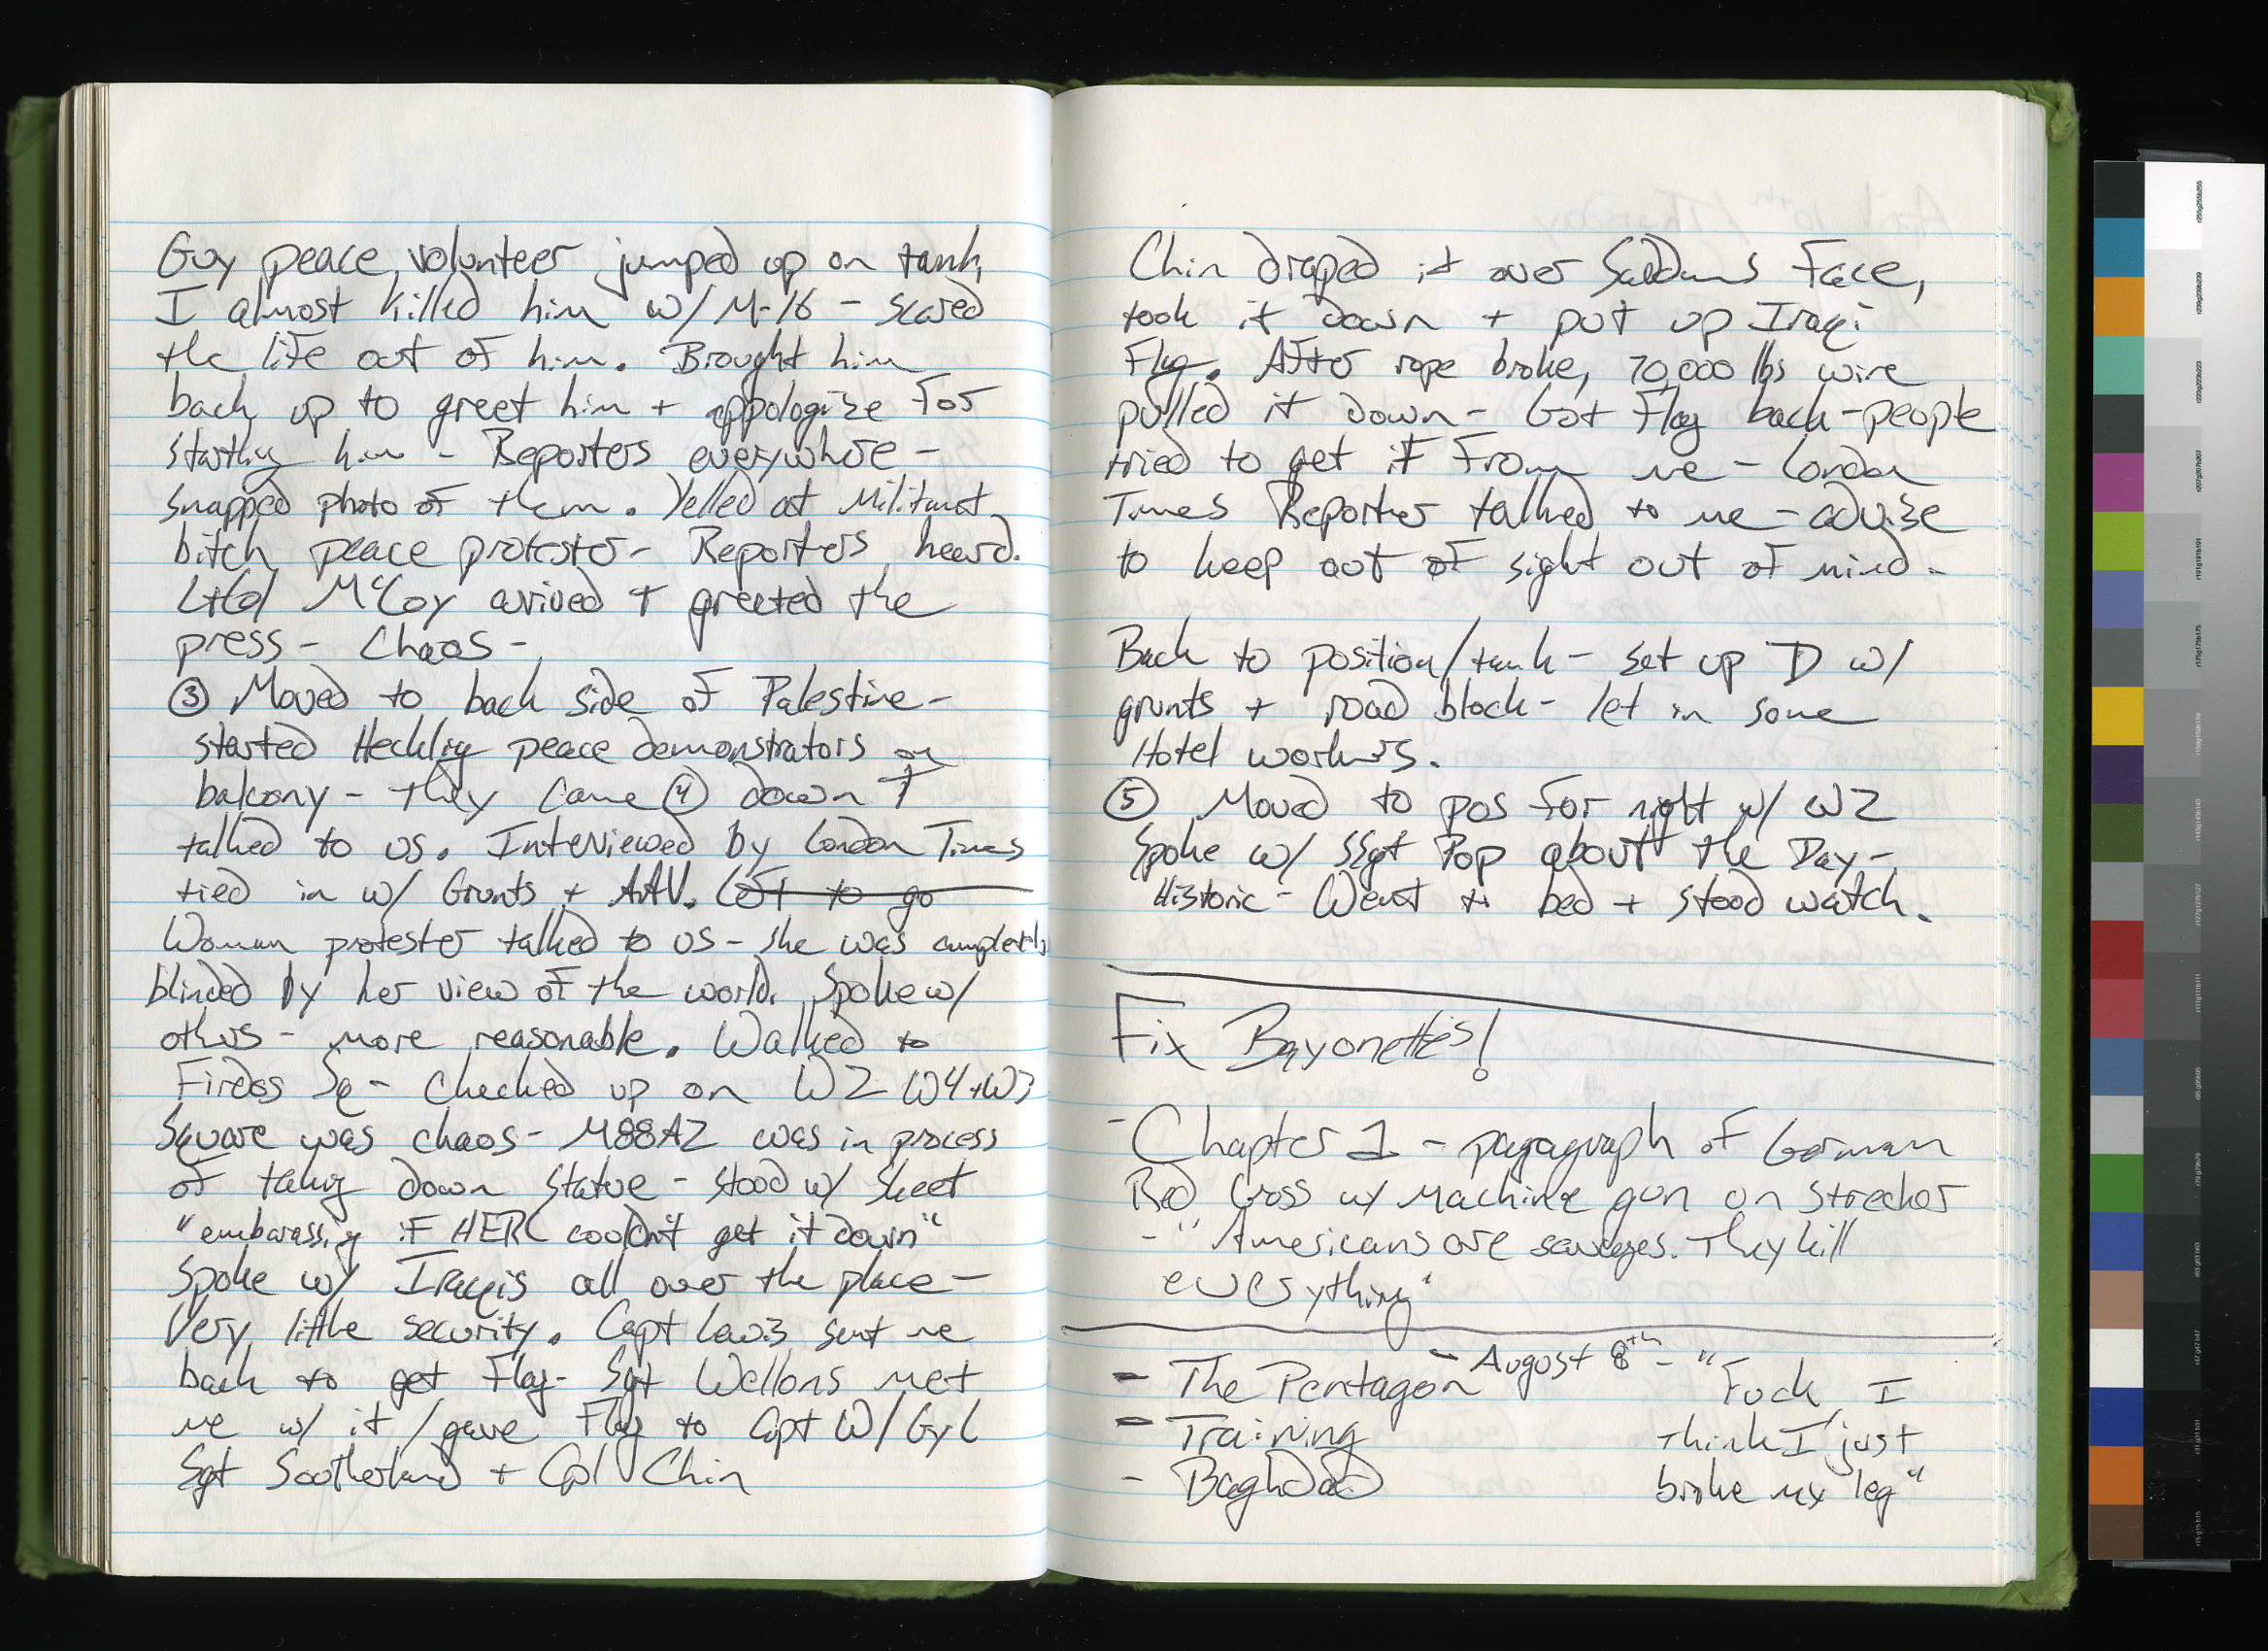 Guy peace volunteer jumped up on tank,
I almost killed him w/ M-16 - scared
the life out of him. Brought him
back up to greet him + appologize For
startling him - Reporters everywhere -
snapped photo of them. Yelled at Militant
bitch peace protester - Reporters heard.
LtCol McCoy arrived + greeted the
press - Chaos -
③ Moved to back side of Palestine -
started Heckling peace demonstrators on
balcony - they came ④ down +
talked to us. Interviewed by London Times
tied in w/ Grunts + AAV. Got to go
Woman protester talked to us - she was completely
blinded by her view of the world. Spoke w/
others - more reasonable. Walked to
Firdos Sq - Checked up on W2 W4+W3
Square was chaos - M88A2 was in process
of taking down statue - stood w/ Skeet
"embarassing if HERC couldn't get it down"
Spoke w/ Iraqis all over the place -
Very little security. Capt Lewis sent me
back to get Flag - Sgt Wellons met
me w/ it / gave Flag to Capt W/ Gy L
Sgt Sootherland + Cpl Chin
Chin draped it over Saddams Face,
took it down + put up Iraqi
Flag. After rope broke, 70,000 lbs wire
pulled it down - Got Flag back - people
tried to get it From me - London
Times Reporter talked to me - advise
to keep out of sight out of mind -
Back to position/tank - set up D w/
grunts + road block - let in some
Hotel workers.
⑤ Moved to pos For night w/ W2
Spoke w/ SSgt Pop about the Day -
Historic - Went to bed + stood watch.
Fix Bayonettes!
- Chapter 1 - pagagraph of German
Red Cross w/ Machine gun on Strecher
- "Americans are savages. They kill
everything"
- The Pentagon - August 8th - "Fuck, I
- Training think I just
- Baghdad broke my leg"
r255g255b255
r239g239b239
r223g223b223
r207g207b207
r191g191b191
r175g175b175
r159g159b159
r143g143b143
r127g127b127
r111g111b111
r95 g95 b95
r79 g79 b79
r63 g63 b63
r47 g47 b47
r31 g31 b31
r15 g15 b15